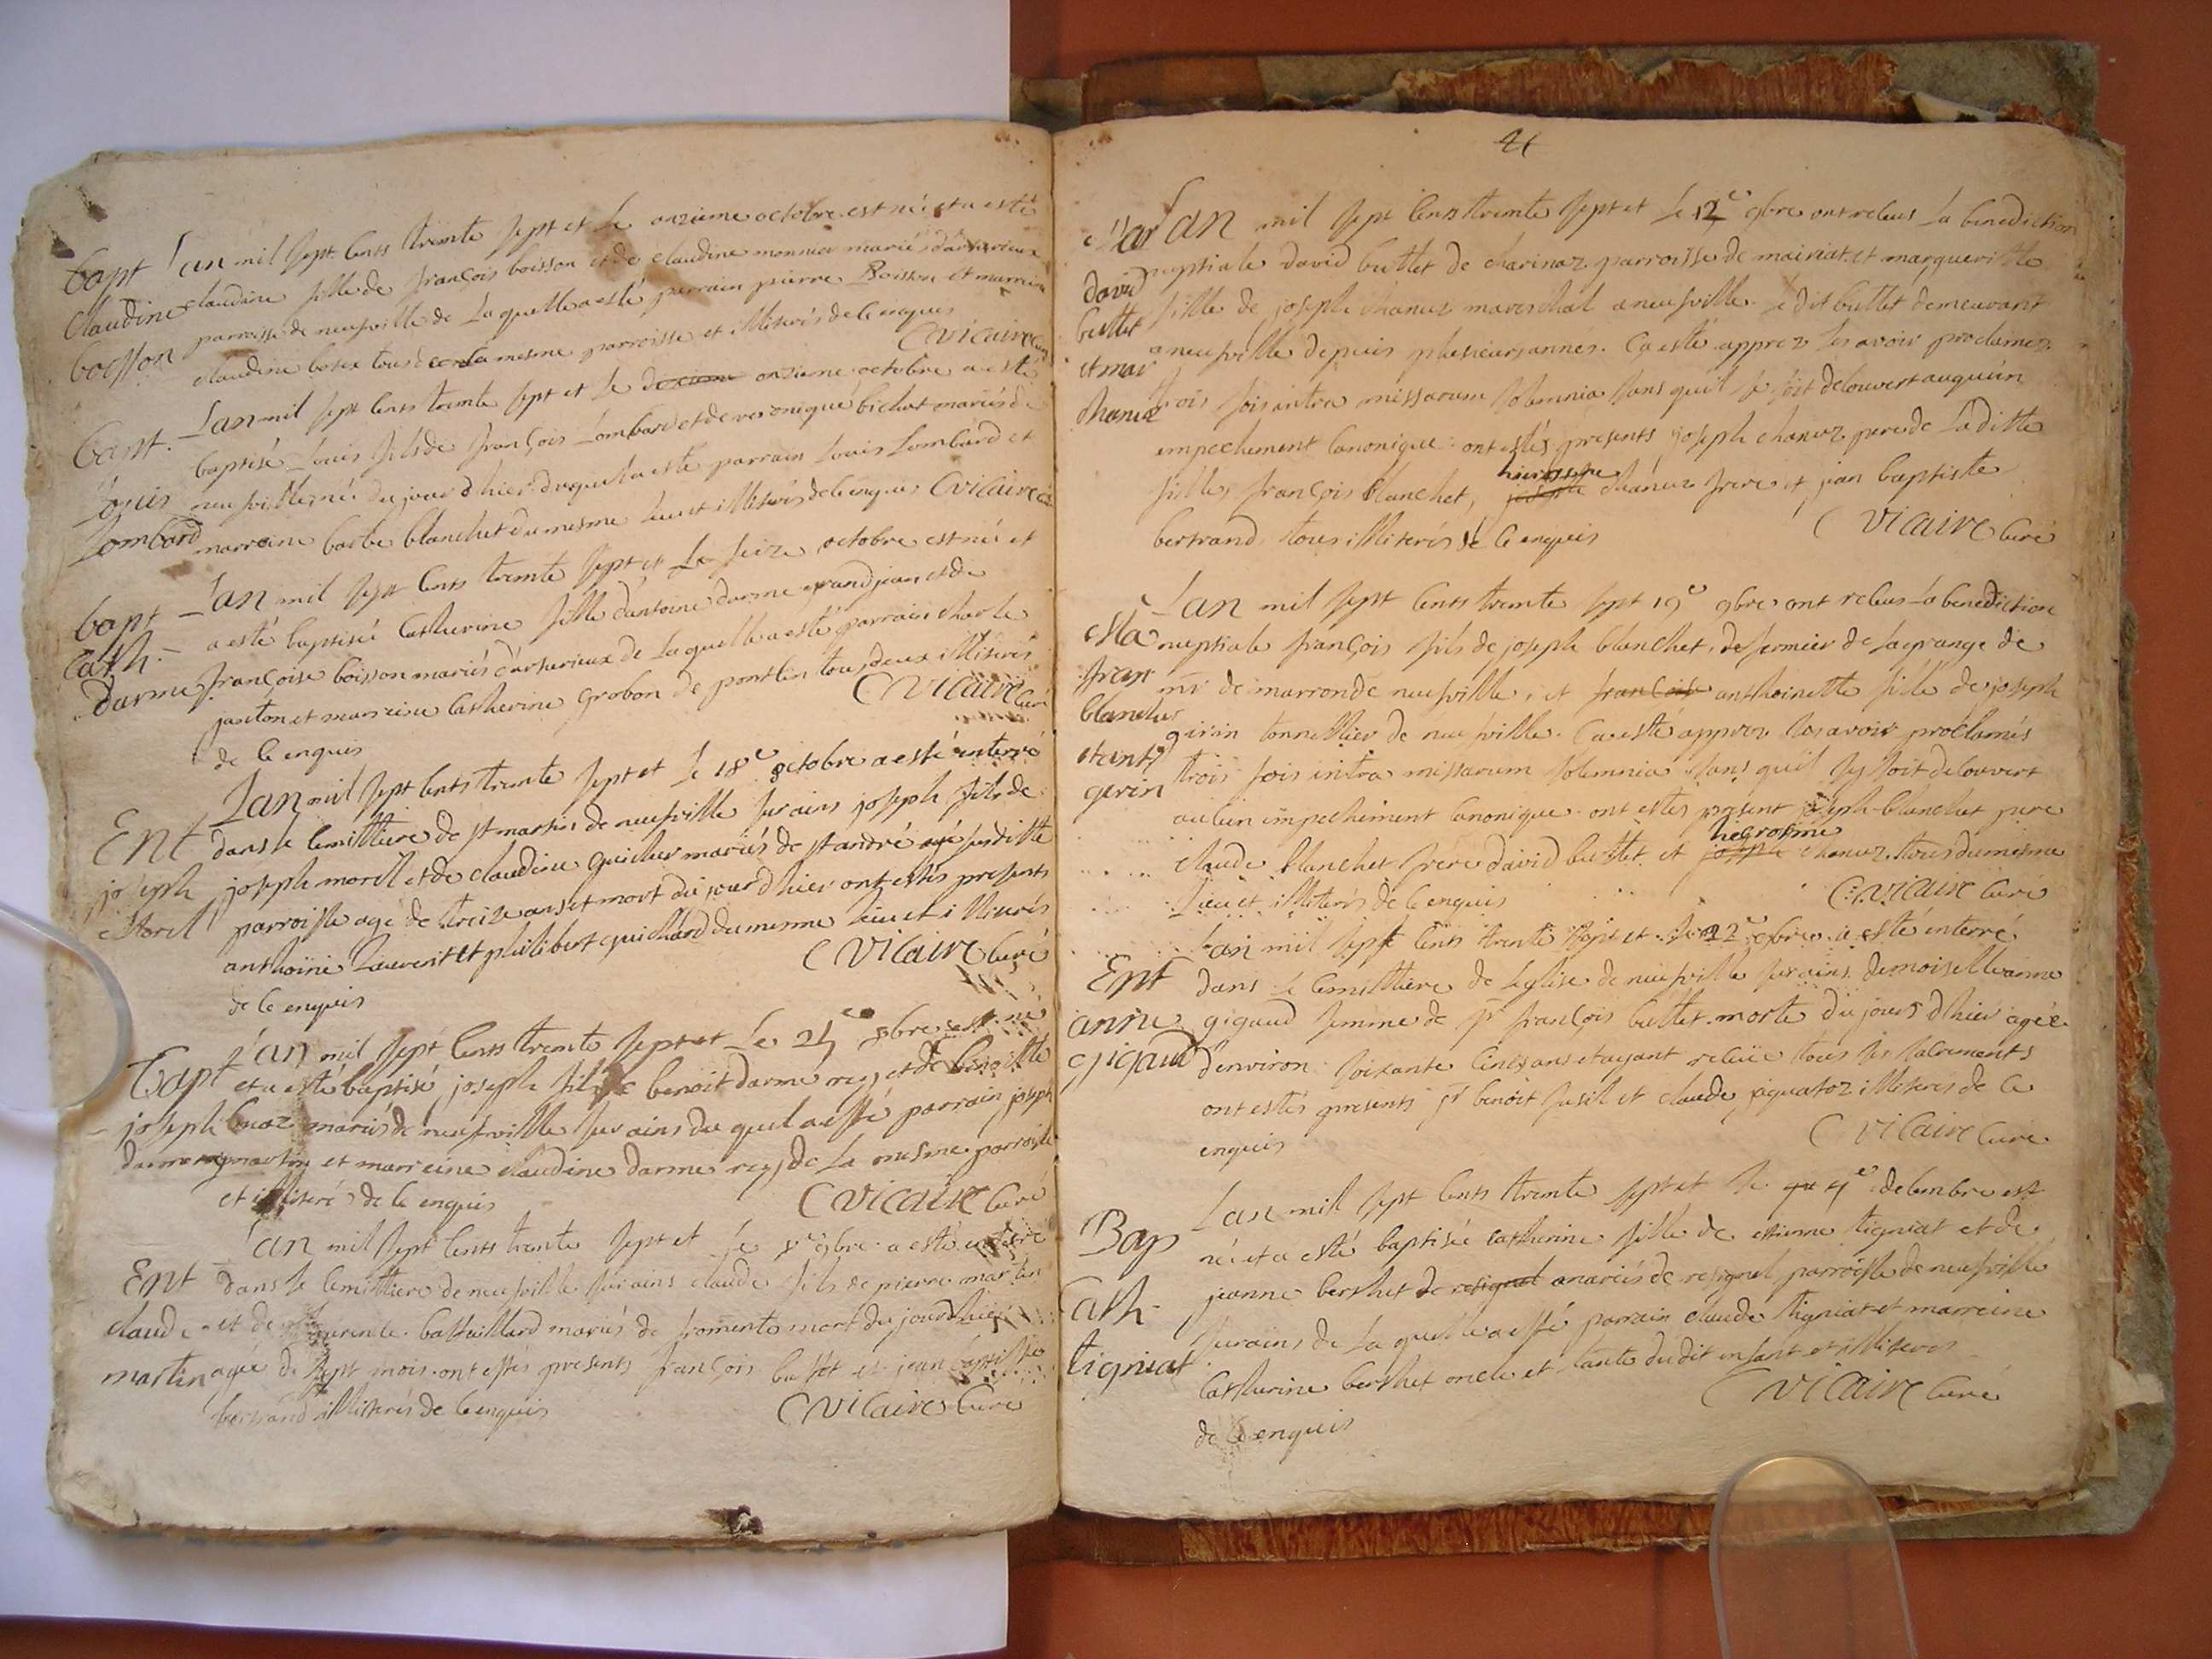 Bapt Lan mil sept cents trente sept et le onzieme octobre est né et a esté
Claudine claudine fille de françois boisson et de claudine monnier mariés
boesson parroisse de neufville de la quelle a esté parrain pierre Boisson et marreine
claudine tous de la mesme parroisse et illiterés de ce enquis
C Vicaire curé
Bapt. Lan mil sept cents trente sept et le onzieme octobre a esté
Louis baptisé Louis fils de françois Lombard et de veronique bichat mariés de
Lombard neufville, né du jour d'hier duquel a esté parrain Louis Lombard et
marreine barbe blanchet du mesme lieu et illiterés de ce enquis C Vicaire
bapt Lan mil sept cents trente sept et Le seize octobre est né et
Cath. a esté baptisée Catherine fille d'antoine darme grandjean et de
darme françoise boisson mariés de la quelle a esté parrain charle
janton et marreine Catherine grobon de pontlin tous deux illiterés
de ce enquis C Vicaire curé
Ent Lan mil sept cents trente sept et le 18e octobre a esté enterré
dans le cemittiere de st martin de neufville sur ains joseph fils de
joseph joseph morel et de claudine guicher mariés de st andré susditte
Morel parroisse agé de treize ans et mort du jour d'hier ont estés presents
anthoine et philibert guichard du mesme lieu et illiterés
de ce enquis C Vicaire curé
Bapt Lan mil sept cents trente sept et Le 8bre est né
et a esté baptisé joseph fils de benoit darme rey et de benoitte
joseph buaz mariés de neufville sur ains du quel a esté parrain joseph
darme et marreine claudine darme rey de la mesme parroisse
et illiteré de ce enquis C Vicaire Curé
Ent Lan mil sept cents trente sept et le 8e 9bre a esté enterré
dans le cemittiere de neufville sur ains claude fils de pierre martin
claude et de mariés de fromente mort du jour d'hier
martin agée de sept mois ont estés presents françois buttet et jean baptiste
bertrand illiterés de ce enquis C Vicaire Curé
21
Mar Lan mil sept cents trente sept et le 12e 9bre ont receus La benediction
david nuptiale david buttet de charinaz parroisse de mairiat et margueritte
buttet fille de joseph chanuz mareschal a neufville. Le dit buttet demeurant
et mar a neufville depuis plusieurs années. Ca esté apprez les avoir proclamez
chanuz trois fois intra missarum solemnia sans quil se soit decouvert auqu'un
empechement canonique. ont estés presents joseph chanuz pere de Laditte
fille, françois blanchet, hierosme chanuz frere et jean baptiste
bertrand tous illiterés de ce enquis C Vicaire Curé
Ma Lan mil sept cents trente sept 19e 9bre ont receus La benediction
fran nuptiale françois fils de joseph blanchet, de fermier de la grange de
blanchet mr de marron de neufville, et françoise anthoinette fille de joseph
et ant girin tonnellier de neufville. Ca esté apprez les avoir proclamés
gerin trois fois intra missarum solemnia sans quil sy soit decouvert
aucun empechement canonique ont estés present joseph blanchet pere
claude blanchet frere david buttet et hierosme chanuz tous du mesme
Lieu et illiterés de ce enquis C Vicaire Curé
Ent Lan mil sept cents trente sept et le 22e 9bre a esté enterré
dans le cemittiere de Leglise de neufville sur ains demoiselle anne
anne gigaud femme de sr françois buttet morte du jour d'hier agée
gigaud d'environ soixante cinq ans et ayant receüe tous les sacrements
ont estés presents sr benoit fusil et claude illiterés de ce
enquis C Vicaire Curé
Bap Lan mil sept cents trente sept et le 4e decembre est
né et a esté baptisée catherine fille de etienne tigniat et de
Cath. jeanne berthet de resignel mariés de resignel parroisse de neufville
tigniat sur ains de La quelle a esté parrain claude tigniat et marreine
Catherine berthet oncle et tante dudit enfant et illiterés
de ce enquis C Vicaire Curé